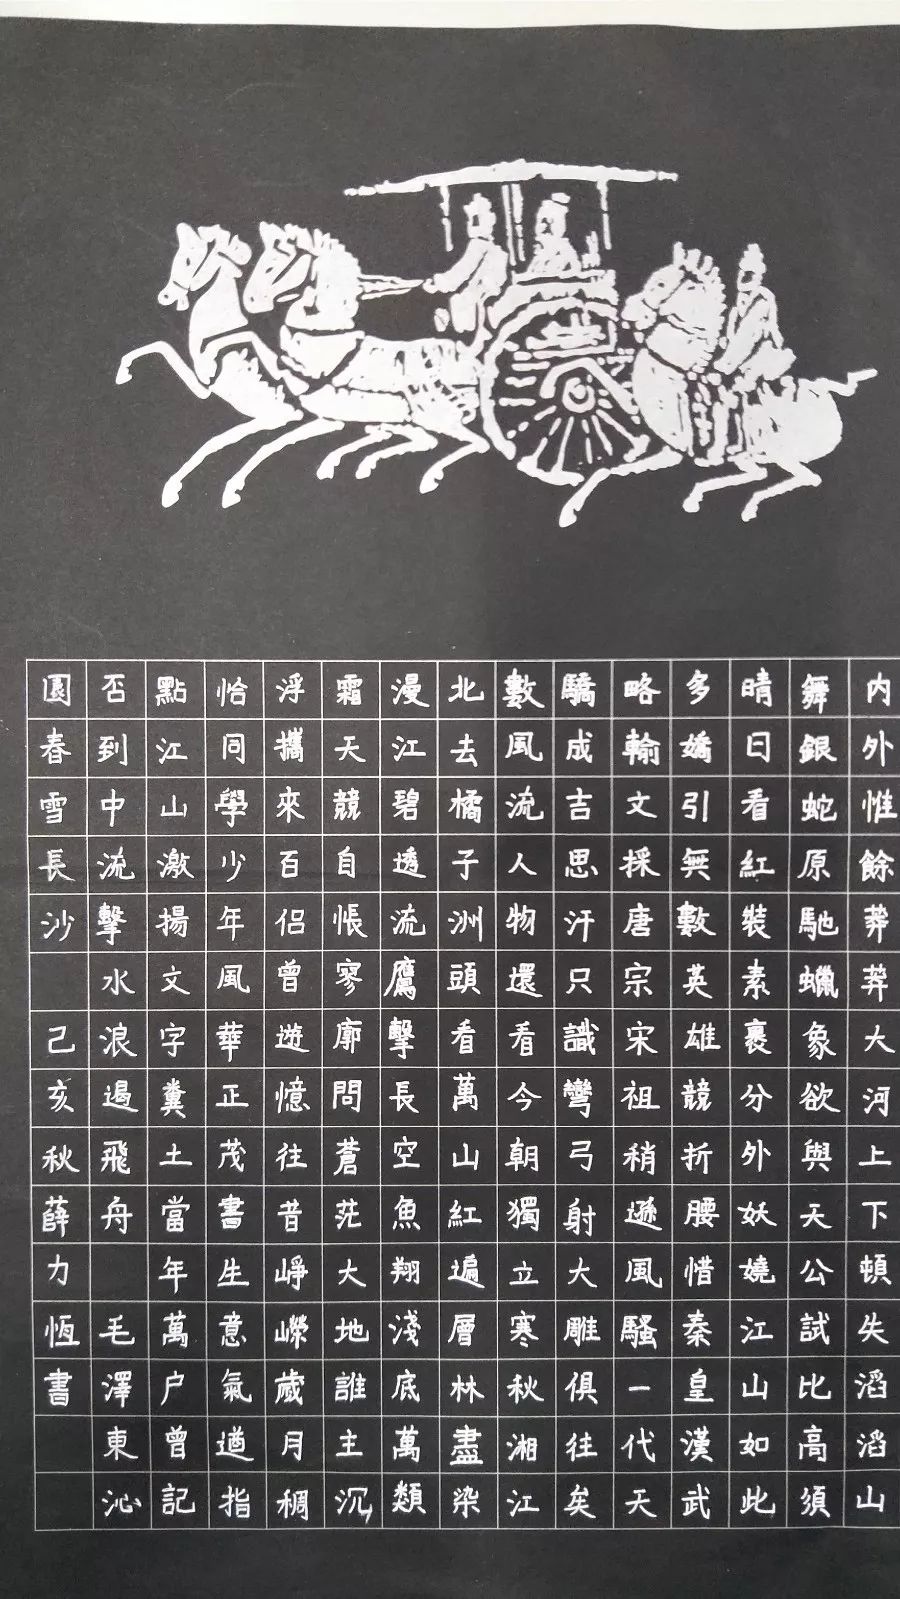 内外惟餘莽莽大河上下頓失滔滔山
舞銀蛇原馳蠟象欲與天公試比高須
晴日看紅裝素裹分外妖嬈江山如此
多嬌引無數英雄競折腰惜秦皇漢武
略輸文採唐宗宋祖稍遜風騷一代天
驕成吉思汗只識彎弓射大雕俱往矣
數風流人物還看今朝獨立寒秋湘江
北去橘子洲頭看萬山紅遍層林盡染
漫江碧透流鷹擊長空魚翔淺底萬類
霜天競自悵寥廓問蒼茫大地誰主沉
浮攜來百侶曾遊憶往昔崢嶸歲月稠
恰同學少年風華正茂書生意氣遒指
點江山激揚文字糞土當年萬户曾記
否到中流擊水浪遏飛舟 毛澤東沁
園春雪長沙 己亥秋薛力恆書